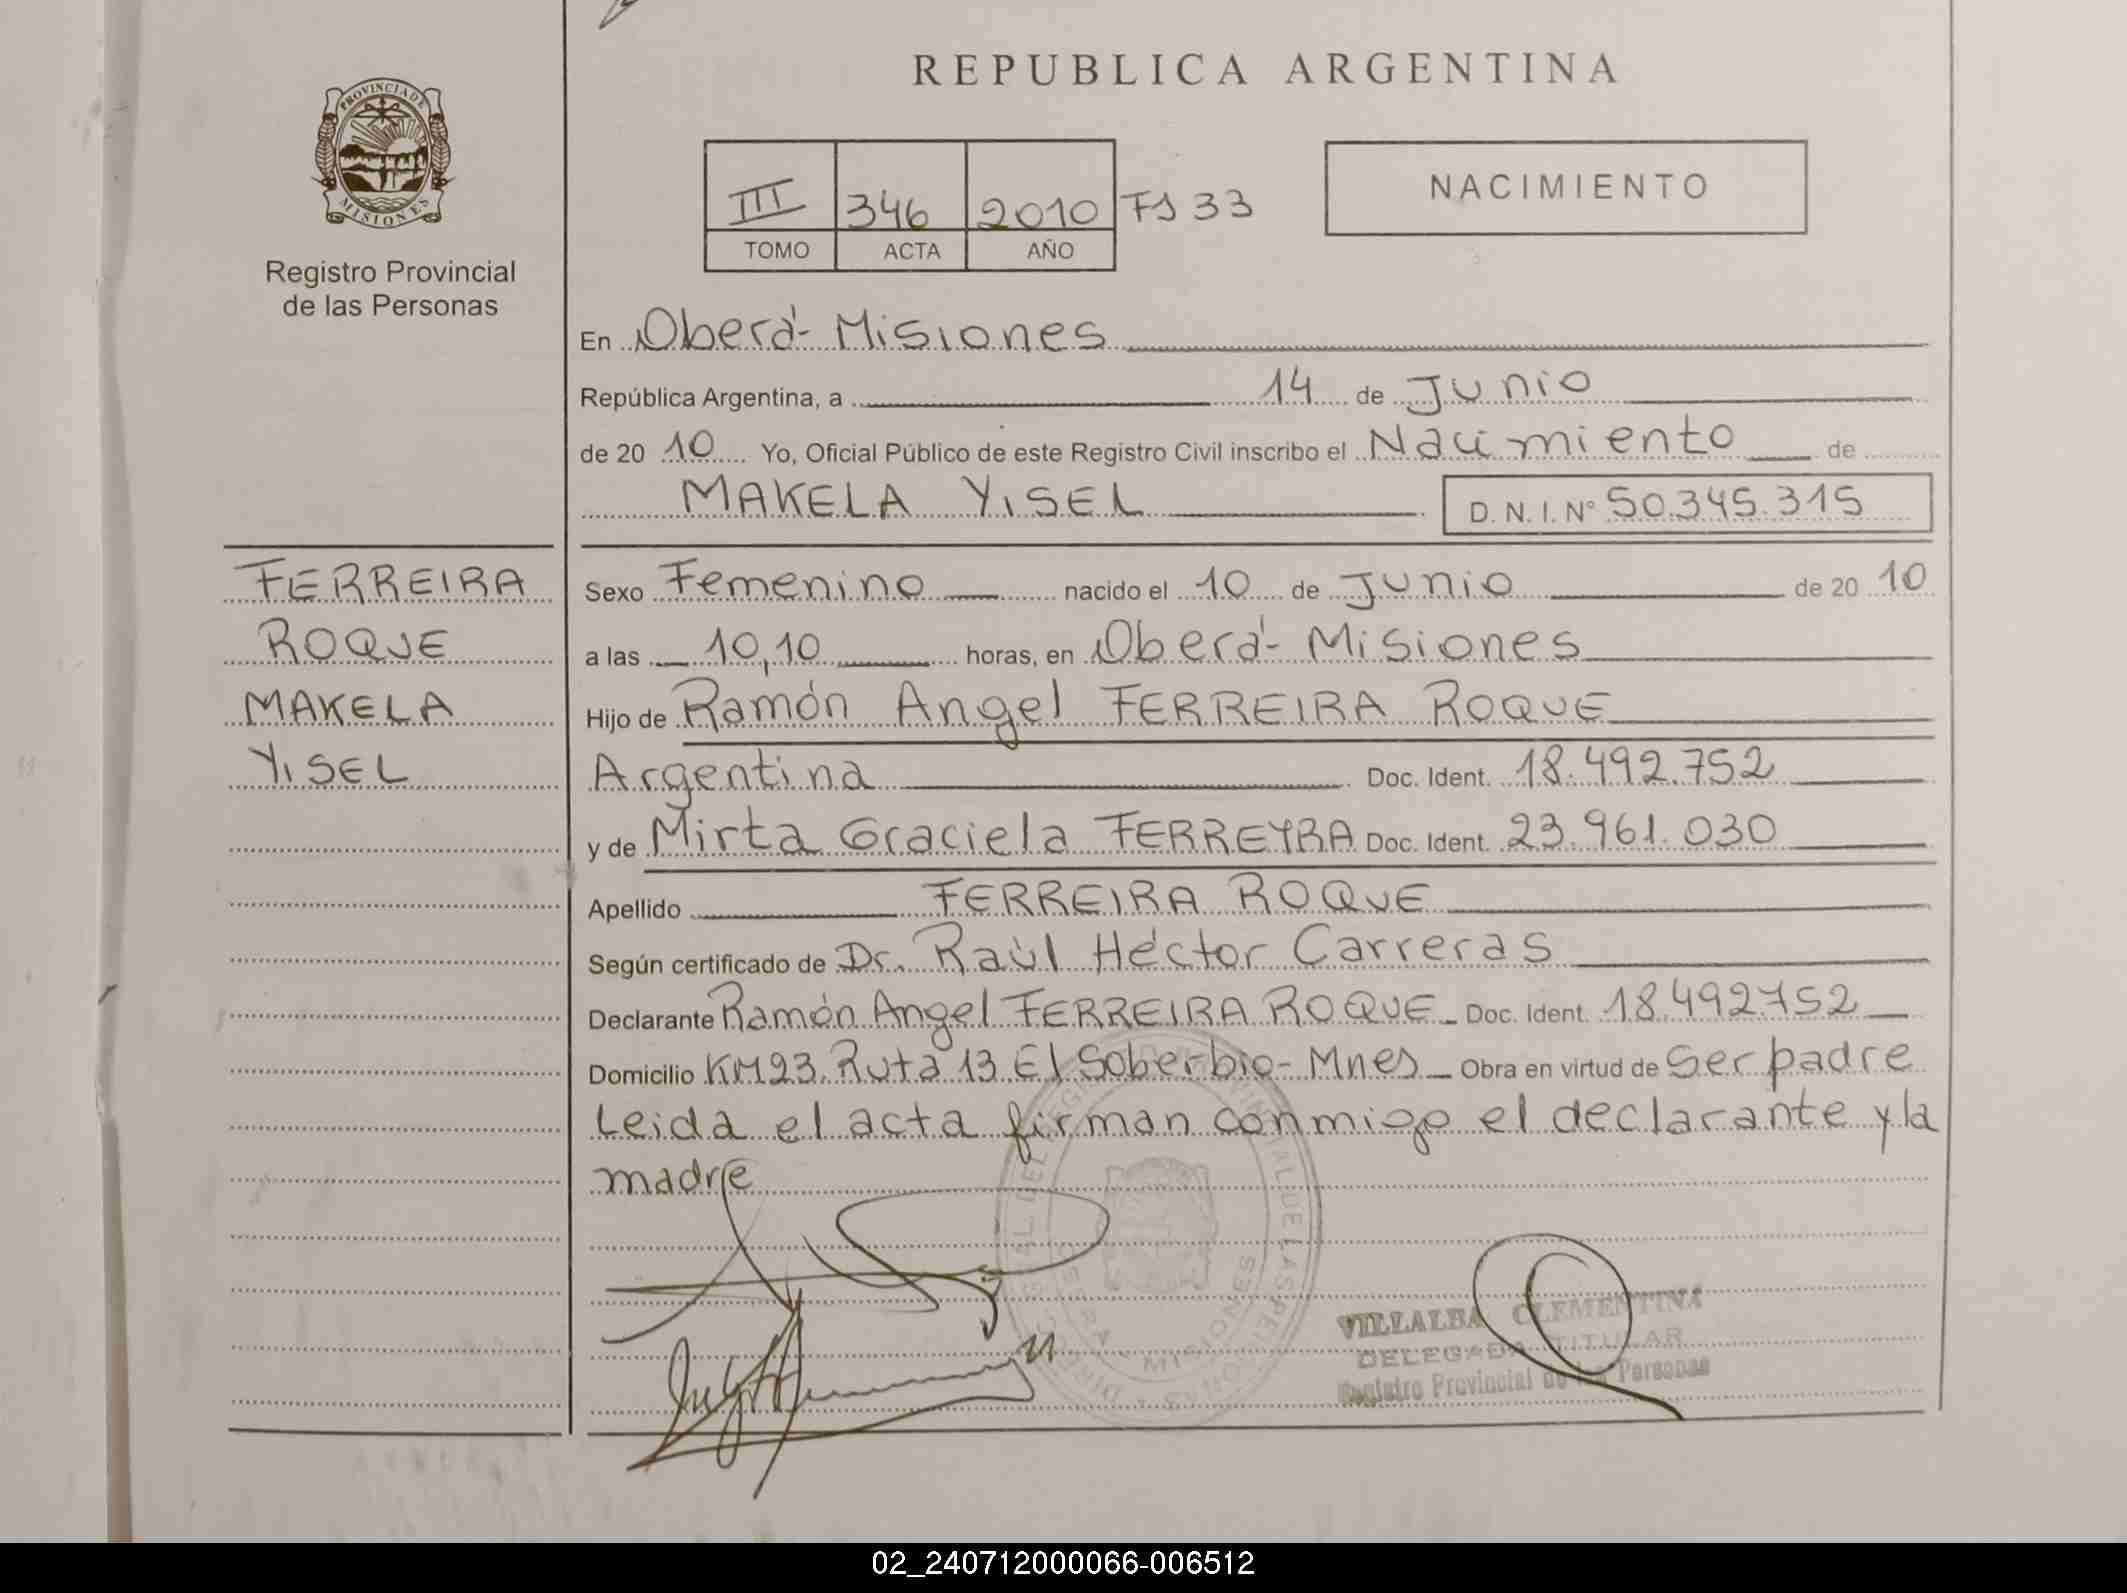 REPUBLICA ARGENTINA
PROVINCIA DE
MISIONES
Registro Provincial
de las Personas
III 346 2010 Fs 33
TOMO ACTA AÑO
NACIMIENTO
En Oberá - Misiones
República Argentina, a 14 de Junio
de 20 10 Yo, Oficial Público de este Registro Civil inscribo el Nacimiento de
MAKELA YISEL D. N. I. N° 50.345.315
FERREIRA
ROQUE
MAKELA
YISEL
Sexo Femenino nacido el 10 de Junio de 20 10
a las 10,10 horas, en Oberá - Misiones
Hijo de Ramón Angel FERREIRA ROQUE
Argentina Doc. Ident. 18.492.752
y de Mirta Graciela FERREYRA Doc. Ident. 23.961.030
Apellido FERREIRA ROQUE
Según certificado de Dr. Raúl Héctor Carreras
Declarante Ramón Angel FERREIRA ROQUE Doc. Ident. 18.492752
Domicilio KM23. Ruta 13 El Soberbio - Mnes Obra en virtud de Ser padre
Leida el acta firman conmigo el declarante y la
madre
VILLALBA CLEMENTINA
DELEGADA TITULAR
Registro Provincial de las Personas
MISIONES
02_240712000066-006512